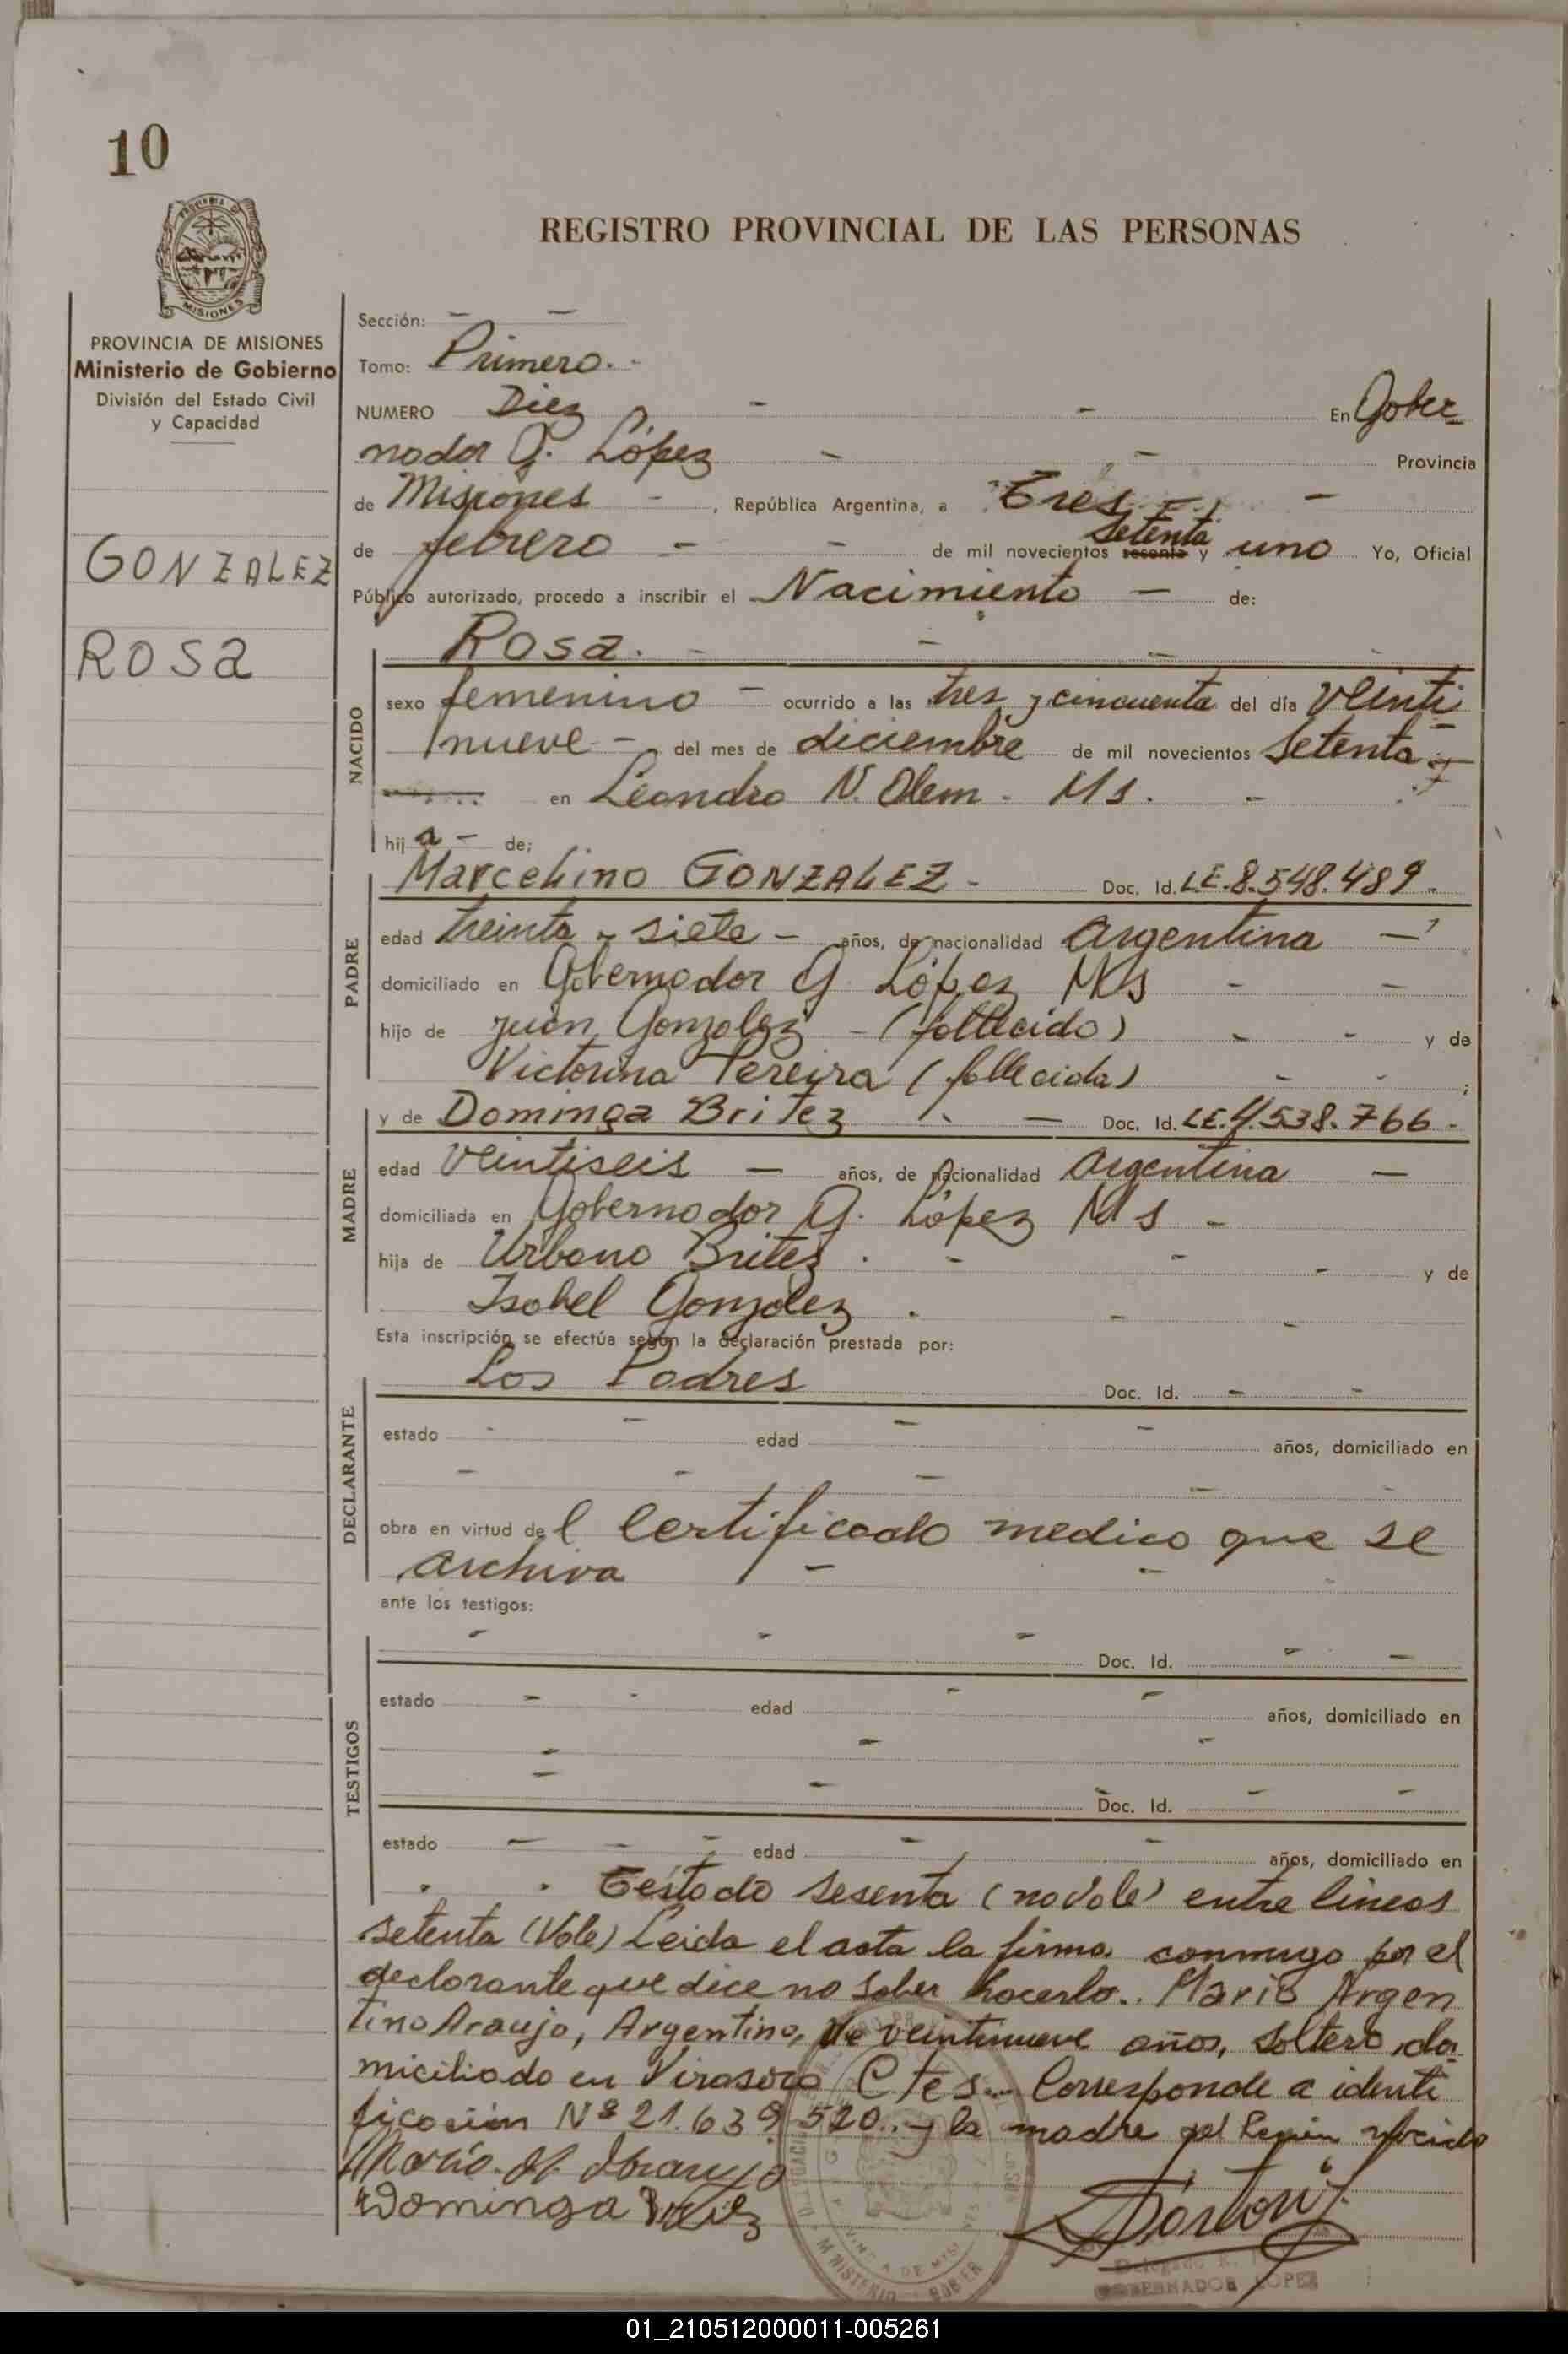 10
REGISTRO PROVINCIAL DE LAS PERSONAS
MISIONES
PROVINCIA DE MISIONES
Ministerio de Gobierno
División del Estado Civil
y Capacidad
GONZALEZ
ROSA
Sección: - -
Tomo: Primero. -
NUMERO Diez - - En Gober
nador G. López - - Provincia
de Misiones - , República Argentina, a Tres - -
setenta
de febrero - - de mil novecientos sesenta y uno Yo, Oficial
Público autorizado, procedo a inscribir el Nacimiento - de:
Rosa. - - -
NACIDO
sexo femenino - ocurrido a las tres y cincuenta del día veinti
nueve - del mes de diciembre de mil novecientos setenta
en Leandro N. Alem - Ms. -
hij a - de;
PADRE
Marcelino GONZALEZ - Doc. Id. LE.8.548.489.
edad treinta y siete - años, de nacionalidad Argentina -
domiciliado en Gobernador G. López Ms - -
hijo de Juan Gonzalez - (fallecido) - - y de
Victorina Pereira (fallecida) - - ;
MADRE
y de Dominga Britez - Doc. Id. LE.4.538.766 -
edad veintiseis - años, de nacionalidad Argentina -
domiciliada en Gobernador G. López Ms -
hija de Urbano Britez . - - - y de
Isabel Gonzalez . - -
Esta inscripción se efectúa según la declaración prestada por:
DECLARANTE
Los Padres Doc. Id. - -
estado - - edad - - años, domiciliado en
- - - -
obra en virtud de l certificado medico que se
archiva - -
ante los testigos:
TESTIGOS
- - - Doc. Id. - -
estado - - edad - - años, domiciliado en
- - -
- - Doc. Id. - -
estado - - - edad - - años, domiciliado en
Testado sesenta (no vale) entre lineas
setenta (Vale) Leida el acta la firma conmigo por el
declarante que dice no saber hacerlo.. Mario Argen
tino Araujo, Argentino, de veintinueve años, soltero, do
miciliado en Virasoro Ctes.. Corresponde a identi
ficación Nº 21.639.520.. y la madre del recien nacido
Mario. A. Araujo
Dominga Britez
MINISTERIO
GOBERNADOR LOPEZ
01_210512000011-005261